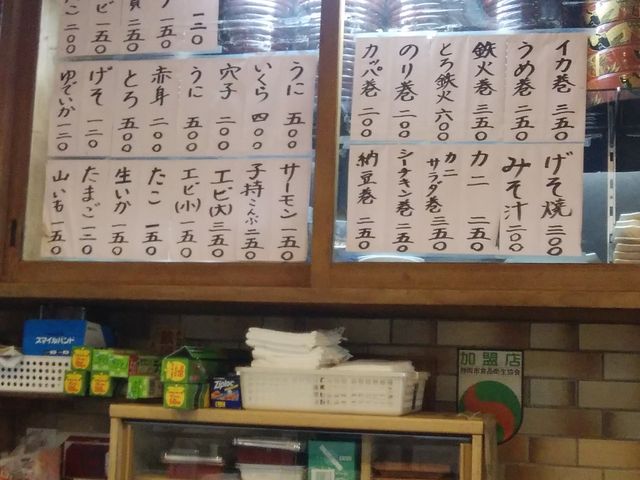 イカ巻 三五〇
うめ巻 二五〇
鉄火巻 三五〇
とろ鉄火 六〇〇
のり巻 二〇〇
カッパ巻 二〇〇
げそ焼 三〇〇
みそ汁 二〇〇
カニ 二五〇
カニサラダ巻 三五〇
シーチキン巻 二五〇
納豆巻 二五〇
一二〇
一五〇
二五〇
一五〇
二〇〇
うに 五〇〇
いくら 四〇〇
穴子 二〇〇
うに 五〇〇
赤身 二〇〇
とろ 五〇〇
げそ 一二〇
ゆでいか 一二〇
サーモン 一五〇
子持こんぶ 二五〇
エビ(大) 三五〇
エビ(小) 一五〇
たこ 一五〇
生いか 一五〇
たまご 一二〇
山いも 一五〇
スマイルバンド
Ziploc
加盟店
静岡市食品衛生協会